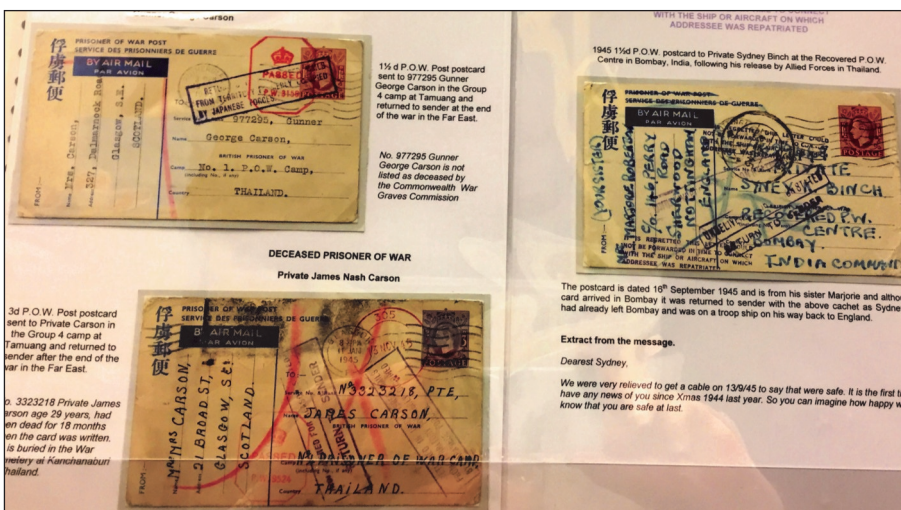 Carson
PRISONER OF WAR POST
SERVICE DES PRISONNIERS DE GUERRE
俘虜郵便
BY AIR MAIL
PAR AVION
PASSED
POSTAGE
FROM TERRITORY
BY JAPANESE FORCES
977295, Gunner
Name George Carson,
BRITISH PRISONER OF WAR
Camp No. 1. P.O.W. Camp,
(including No., if any)
Country THAILAND.
FROM
Mrs. Carson,
327, Dalmarnock Road
Glasgow, S.E.
SCOTLAND.
1½ d P.O.W. Post postcard
sent to 977295 Gunner
George Carson in the Group
4 camp at Tamuang and
returned to sender at the end
of the war in the Far East.
No. 977295 Gunner
George Carson is not
listed as deceased by
the Commonwealth War
Graves Commission
DECEASED PRISONER OF WAR
Private James Nash Carson
3d P.O.W. Post postcard
sent to Private Carson in
the Group 4 camp at
Tamuang and returned to
sender after the end of the
war in the Far East.
o. 3323218 Private James
arson age 29 years, had
en dead for 18 months
en the card was written.
is buried in the War
metery at Kanchanaburi
hailand.
俘虜郵便
PRISONER OF WAR POST
SERVICE DES PRISONNIERS DE GUERRE
BY AIR MAIL
PAR AVION
1945
305
POSTAGE
Nº 3323218, PTE,
Name JAMES CARSON.
BRITISH PRISONER OF WAR
Camp Nº1 PRISONER OF WAR CAMP
(including No., if any)
Country THAILAND.
PASSED
FROM
MRS CARSON,
21 BROAD ST,
GLASGOW, SE1
SCOTLAND.
WITH THE SHIP OR AIRCRAFT ON WHICH
ADDRESSEE WAS REPATRIATED
1945 1½d P.O.W. postcard to Private Sydney Binch at the Recovered P.O.W.
Centre in Bombay, India, following his release by Allied Forces in Thailand.
PRISONER OF WAR POST
SERVICE DES PRISONNIERS DE GUERRE
俘虜郵便
BY AIR MAIL
PAR AVION
POSTAGE
BINCH
RECOVERED P.W.
CENTRE.
BOMBAY.
INDIA COMMAND
FROM
MARJORIE
146 PERRY
ROAD
SHERWOOD
NOTTINGHAM
ENGLAND
IS REGRETTED THIS
NOT BE FORWARDED IN TIME TO CONNECT
WITH THE SHIP OR AIRCRAFT ON WHICH
ADDRESSEE WAS REPATRIATED
The postcard is dated 16th September 1945 and is from his sister Marjorie and altho
card arrived in Bombay it was returned to sender with the above cachet as Sydne
had already left Bombay and was on a troop ship on his way back to England.
Extract from the message.
Dearest Sydney,
We were very relieved to get a cable on 13/9/45 to say that were safe. It is the first
have any news of you since Xmas 1944 last year. So you can imagine how happy w
know that you are safe at last.